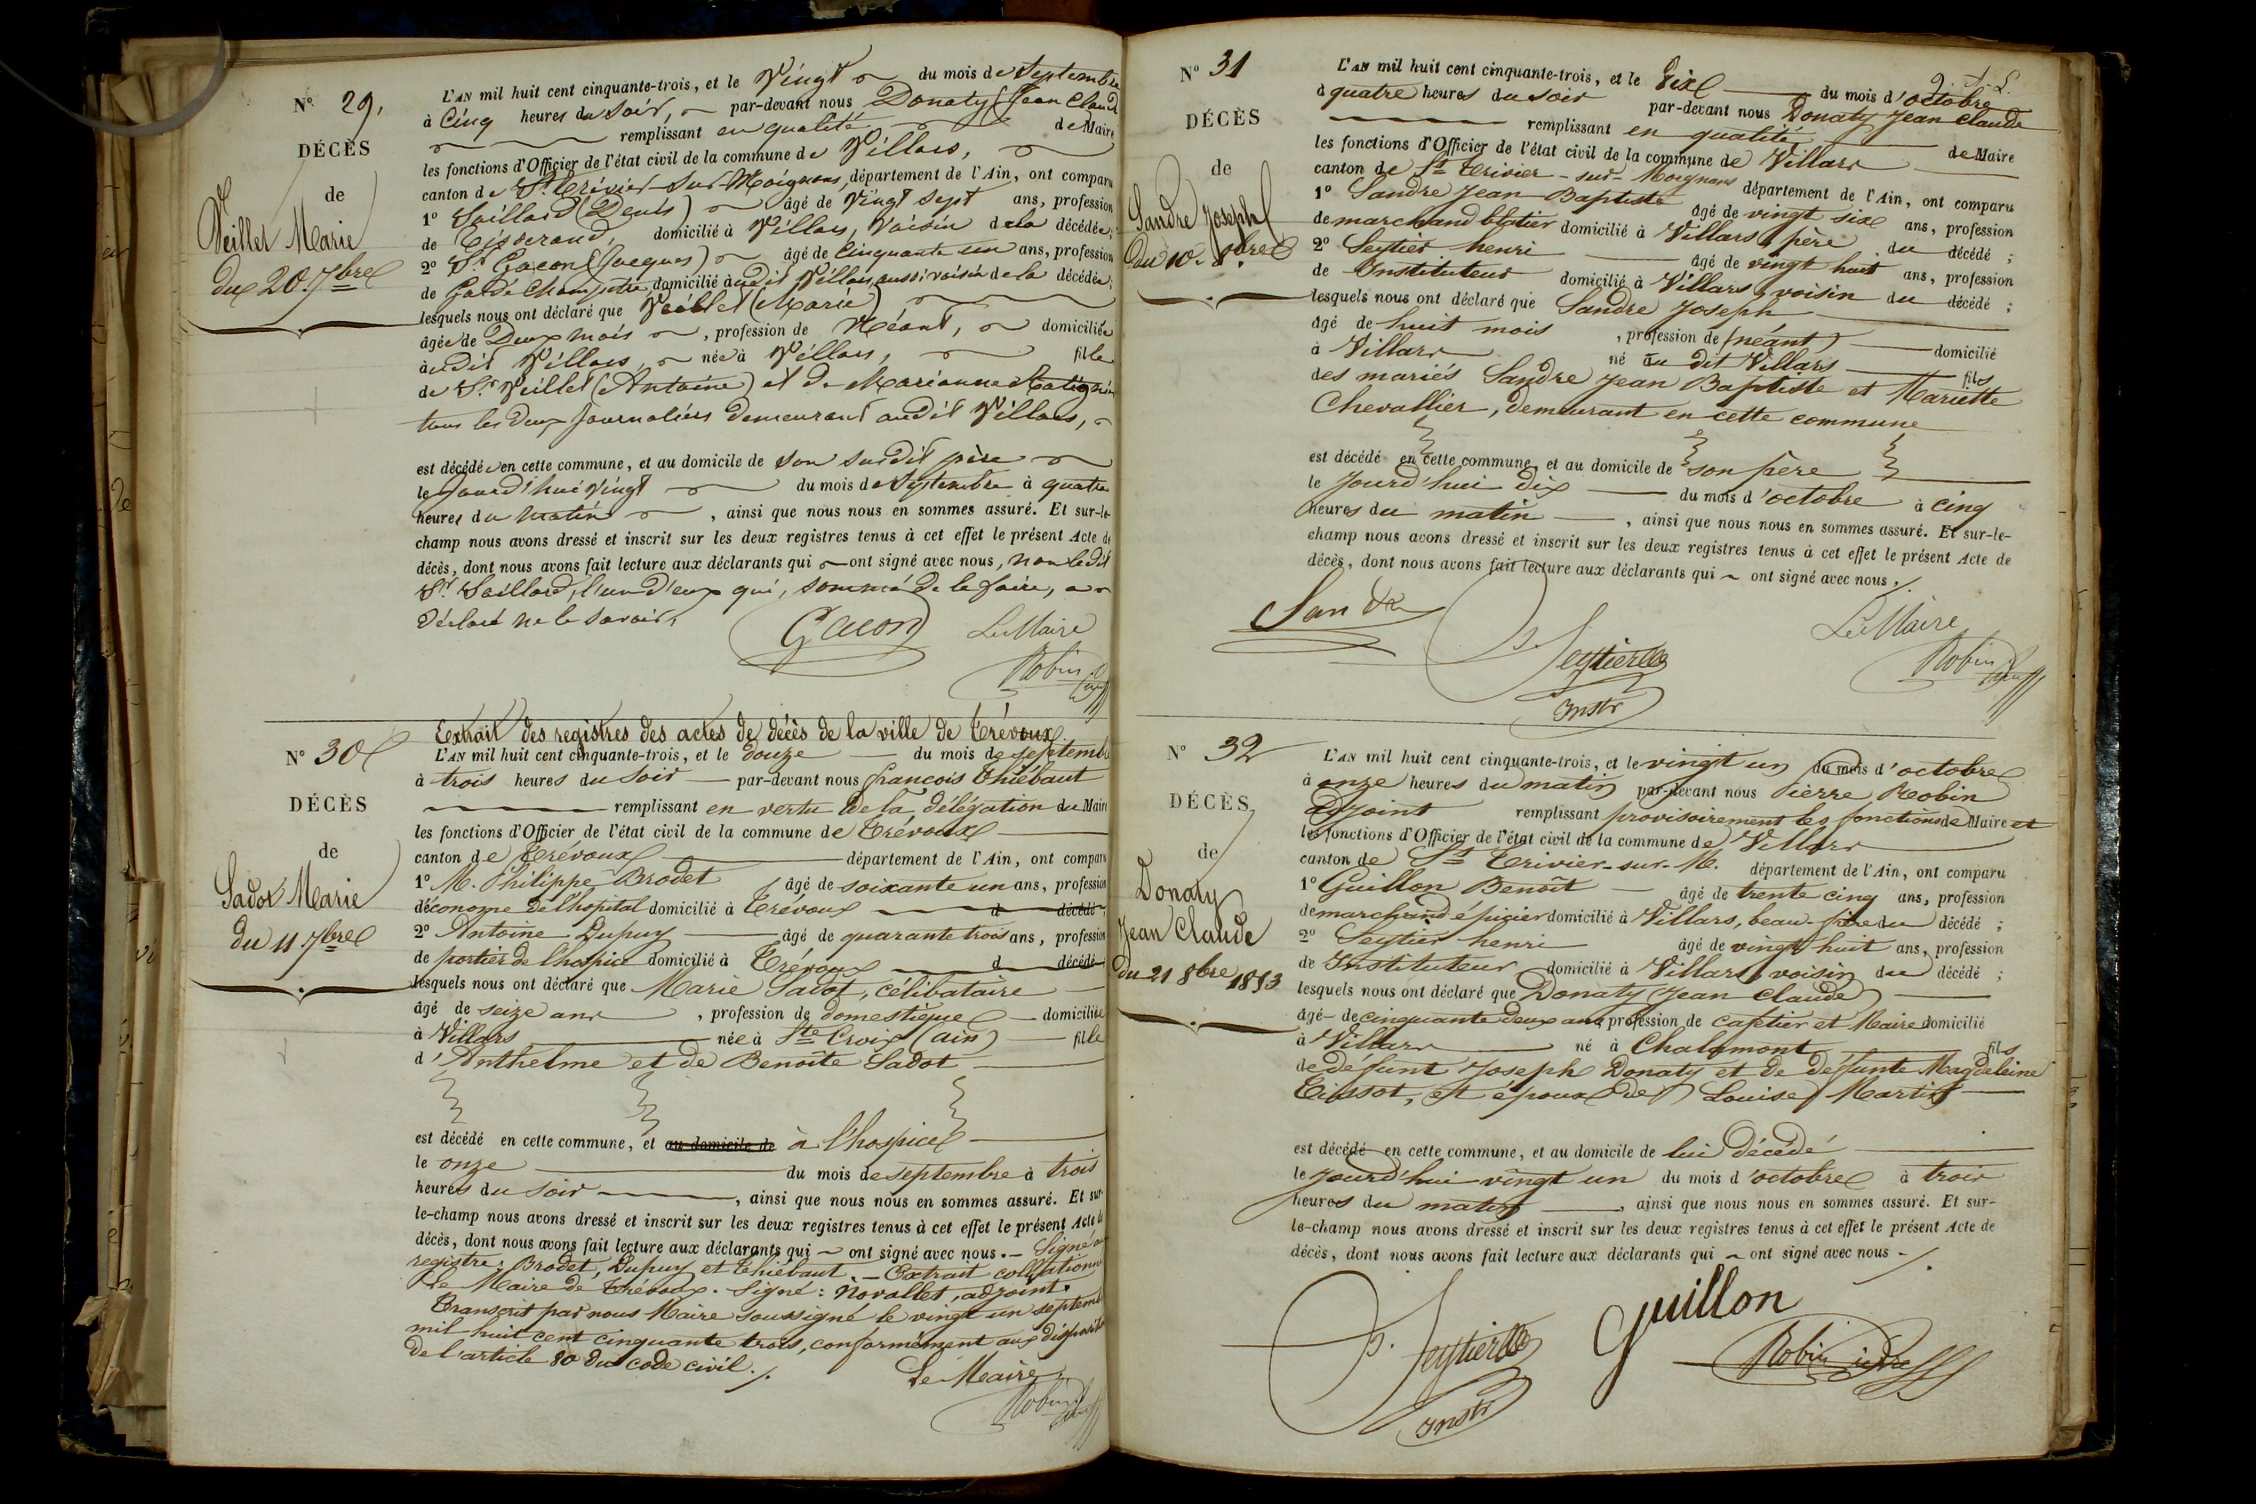 N° 29.
DÉCÈS
de
Veillet Marie
du 20 7bre
L'AN mil huit cent cinquante-trois, et le Vingt du mois de Septembre
à Cinq heures du Soir, par-devant nous Donaty (Jean Claude
remplissant en qualité de Maire
les fonctions d'Officier de l'état civil de la commune de Villars,
canton de St Trivier-Sur-Moignans, département de l'Ain, ont comparu
1° Saillard (Denis) âgé de Vingt Sept ans, profession
de Tisserand, domicilié à Villars, Voisin de la décédée;
2° Sr Gacon (Jacques) âgé de Cinquante un ans, profession
de Garde Champetre, domicilié audit Villars, aussi voisin de la décédée;
lesquels nous ont déclaré que Veillet (Marie)
âgée de Deux mois, profession de Néant, domiciliée
audit Villars, née à Villars, fille
de Sr Veillet (Antoine) et de Marianne
tous les deux Journaliers demeurant audit Villars,
est décédée en cette commune, et au domicile de son susdit père
le Jourd'hui Vingt du mois de Septembre à quatre
heures du Matin, ainsi que nous nous en sommes assuré. Et sur-le-
champ nous avons dressé et inscrit sur les deux registres tenus à cet effet le présent Acte de
décès, dont nous avons fait lecture aux déclarants qui ont signé avec nous, non ledit
Sr Saillard, l'un d'eux qui, sommé de le faire, a
déclaré ne le savoir.
Gacon Le Maire
Robin
N° 30
DÉCÈS
de
Sadot Marie
du 11 7bre
Extrait des registres des actes de décès de la ville de Trévoux
L'AN mil huit cent cinquante-trois, et le douze du mois de septembre
à trois heures du soir par-devant nous françois Thiébaut
remplissant en vertu de la délégation du Maire
les fonctions d'Officier de l'état civil de la commune de Trévoux
canton de Trévoux département de l'Ain, ont comparu
1° M. Philippe Brodet âgé de soixante un ans, profession
d'économe de l'hopital domicilié à Trévoux d décédé;
2° Antoine Dupuy âgé de quarante trois ans, profession
de portier de l'hospice domicilié à Trévoux d décédé
lesquels nous ont déclaré que Marie Sadot, célibataire
âgé de seize ans, profession de domestique domiciliée
à Villars née à Ste Croix (ain) fille
d'Anthelme et de Benoîte Sadot
est décédé en cette commune, et au domicile de à l'hospice
le onze du mois de septembre à trois
heures du soir, ainsi que nous nous en sommes assuré. Et sur-
le-champ nous avons dressé et inscrit sur les deux registres tenus à cet effet le présent Acte de
décès, dont nous avons fait lecture aux déclarants qui ont signé avec nous. - Signé au
registre: Brodet, Dupuy et Thiébaut. - Extrait collationné
Le Maire de Trévoux. Signé: Novallet, adjoint.
Transcrit par nous Maire soussigné le vingt un septembre
mil huit cent cinquante trois, conformément aux dispositions
de l'article 80 du code civil.
Le Maire
Robin
N° 31
DÉCÈS
de
Sandre Joseph
du 10. 8bre
L'AN mil huit cent cinquante-trois, et le Dix du mois d'octobre
à quatre heures du soir par-devant nous Donaty Jean Claude
remplissant en qualité de Maire
les fonctions d'Officier de l'état civil de la commune de Villars
canton de St Trivier-sur-Moignans département de l'Ain, ont comparu
1° Sandre Jean Baptiste âgé de vingt six ans, profession
de marchand blatier domicilié à Villars, père du décédé;
2° Seytier henri âgé de vingt huit ans, profession
de Instituteur domicilié à Villars, voisin du décédé;
lesquels nous ont déclaré que Sandre Joseph
âgé de huit mois, profession de (néant) domicilié
à Villars né au dit Villars fils
des mariés Sandre Jean Baptiste et Mariette
Chevallier, demeurant en cette commune
est décédé en cette commune, et au domicile de son père
le Jourd'hui dix du mois d'octobre à cinq
heures du matin, ainsi que nous nous en sommes assuré. Et sur-le-
champ nous avons dressé et inscrit sur les deux registres tenus à cet effet le présent Acte de
décès, dont nous avons fait lecture aux déclarants qui ont signé avec nous.
Sandre
Seytier
Instr
Le Maire
Robin
N° 32
DÉCÈS
de
Donaty
Jean Claude
du 21 8bre 1853
L'AN mil huit cent cinquante-trois, et le vingt un du mois d'octobre
à onze heures du matin par-devant nous Pierre Robin
adjoint remplissant provisoirement les fonctions de Maire et
les fonctions d'Officier de l'état civil de la commune de Villars
canton de St Trivier-sur-M. département de l'Ain, ont comparu
1° Guillon Benoît âgé de trente cinq ans, profession
de marchand épicier domicilié à Villars, beau-frère du décédé;
2° Seytier henri âgé de vingt huit ans, profession
de Instituteur domicilié à Villars, voisin du décédé;
lesquels nous ont déclaré que Donaty (Jean Claude)
âgé de cinquante deux ans, profession de cafetier et Maire domicilié
à Villars né à Chalamont fils
de défunt Joseph Donaty et de défunte Magdeleine
Tissot, et époux de Louise Martin
est décédé en cette commune, et au domicile de lui décédé
le jourd'hui vingt un du mois d'octobre à trois
heures du matin, ainsi que nous nous en sommes assuré. Et sur-
le-champ nous avons dressé et inscrit sur les deux registres tenus à cet effet le présent Acte de
décès, dont nous avons fait lecture aux déclarants qui ont signé avec nous.
Seytier
Instr
Guillon
Robin